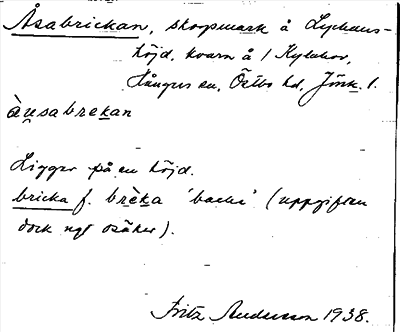 Åsabrickan, skogsmark å Lyckans-
höjd, kvarn å 1 Kylahov,
Kångers sn, Östbo hd, Jönk. l.
àu̯sabrekan
Ligger på en höjd.
bricka f. brèka 'backe' (uppgiften
dock ngt osäker).
Fritz Andersson 1938.